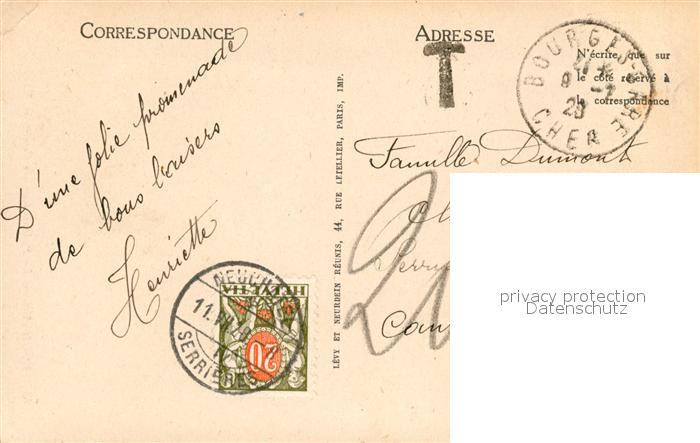 CORRESPONDANCE
ADRESSE
N'écrire que sur
le côté réservé à
la correspondance
T
BOURGES-GARE
CHER
D'une jolie promenade
de bons baisers
Henriette
Famille Dumont
Serri
Can
20
LÉVY ET NEURDEIN RÉUNIS, 44, RUE LETELLIER, PARIS, IMP.
HELVETIA
20
NEUCH
11.VII.
SERRIÈRES
privacy protection
Datenschutz